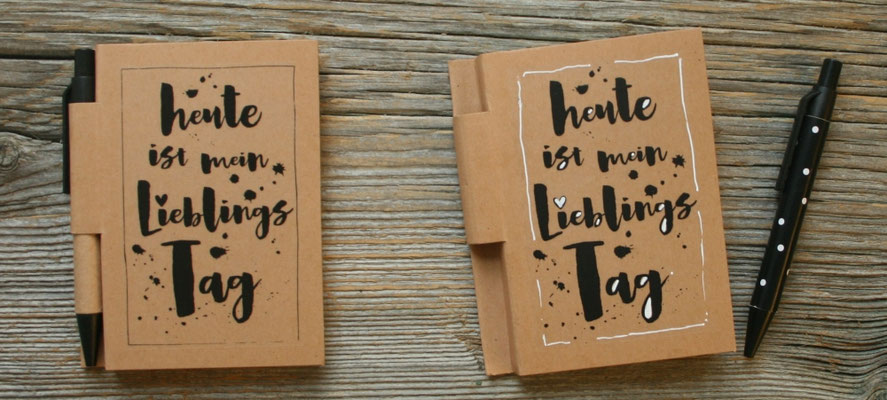 heute
ist mein
Lieblings
Tag
heute
ist mein
Lieblings
Tag